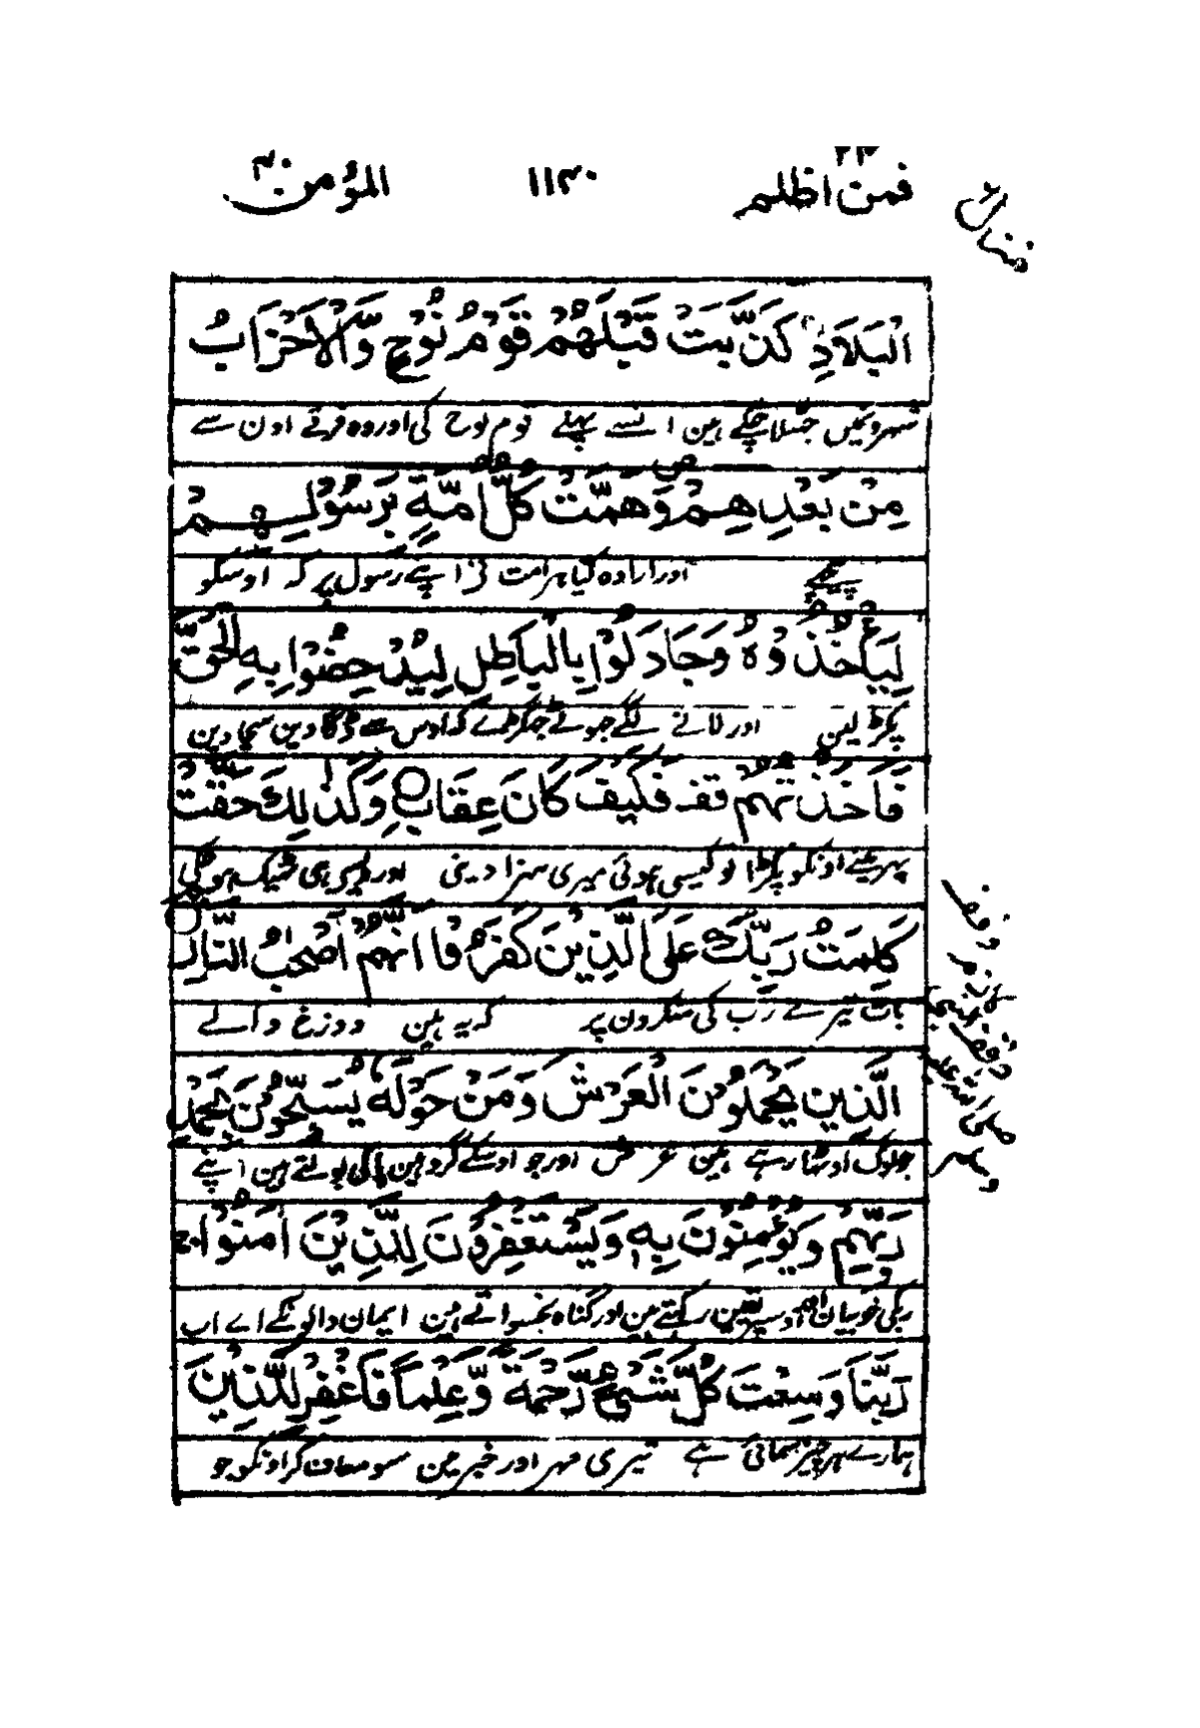 فمن اظلم ۲۴ ۱۱۴۰ المؤمن ۴۰
منزل ۶
الْبِلَادِ كَذَّبَتْ قَبْلَهُمْ قَوْمُ نُوْحٍ وَّالْاَحْزَابُ
شہرونمیں جھٹلا چکے ہین انسے پہلے قوم نوح کی اور وہ فرقے اون سے
مِنْ بَعْدِهِمْ ص وَهَمَّتْ كُلُّ اُمَّةٍ بِرَسُوْلِهِمْ
پیچھے اور ارادہ کیا ہر امت نے اپنے رسول پر کہ اوسکو
لِيَاْخُذُوْهُ وَجَادَلُوْا بِالْبَاطِلِ لِيُدْحِضُوْا بِهِ الْحَقَّ
پکڑ لین اور لانے لگے جھوٹے جھگڑے کہ اوس سے ڈگا دین سچا دین
فَاَخَذْتُهُمْ قف فَكَيْفَ كَانَ عِقَابِ وَكَذٰلِكَ حَقَّتْ
پھر مینے اونکو پکڑا تو کیسی ہوئی میری سزا دینی اور ویسی ہی ٹھیک ہو چکی
كَلِمَتُ رَبِّكَ عَلَى الَّذِيْنَ كَفَرُوْا اَنَّهُمْ اَصْحٰبُ النَّارِ
بات تیرے رب کی منکرون پر کہ یہ ہین دوزخ والے
الَّذِيْنَ يَحْمِلُوْنَ الْعَرْشَ وَمَنْ حَوْلَهٗ يُسَبِّحُوْنَ بِحَمْدِ
جو لوگ اوٹھا رہے ہین عرش اور جو اوسکے گرد ہین پاکی بولتے ہین اپنے
رَبِّهِمْ وَيُؤْمِنُوْنَ بِهٖ وَيَسْتَغْفِرُوْنَ لِلَّذِيْنَ اٰمَنُوْا ج
ربکی خوبیان اور اوسپر یقین رکھتے ہین اور گناہ بخشواتے ہین ایمان والونکے اے رب
رَبَّنَا وَسِعْتَ كُلَّ شَيْءٍ رَّحْمَةً وَّعِلْمًا فَاغْفِرْ لِلَّذِيْنَ
ہمارے ہر چیز سمائی ہے تیری مہر اور خبر مین سو معاف کر اونکو جو